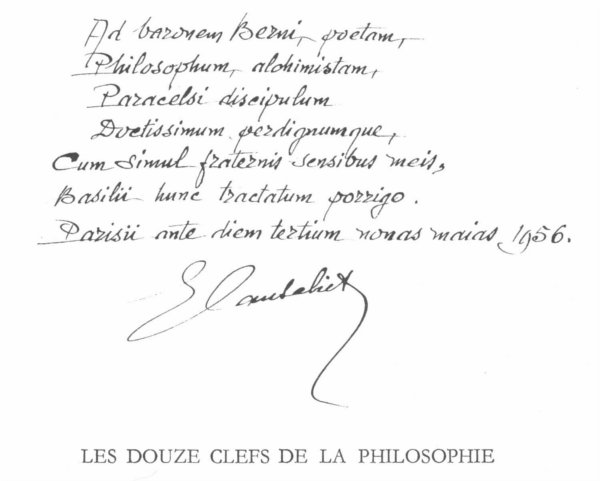 Ad baronem Berni, poetam,
Philosophum, alchimistam,
Paracelsi discipulum
Doctissimum perdignumque,
Cum simul fraternis sensibus meis,
Basilii hunc tractatum porrigo.
Parisii ante diem tertium nonas maias, 1956.
E Canseliet
LES DOUZE CLEFS DE LA PHILOSOPHIE